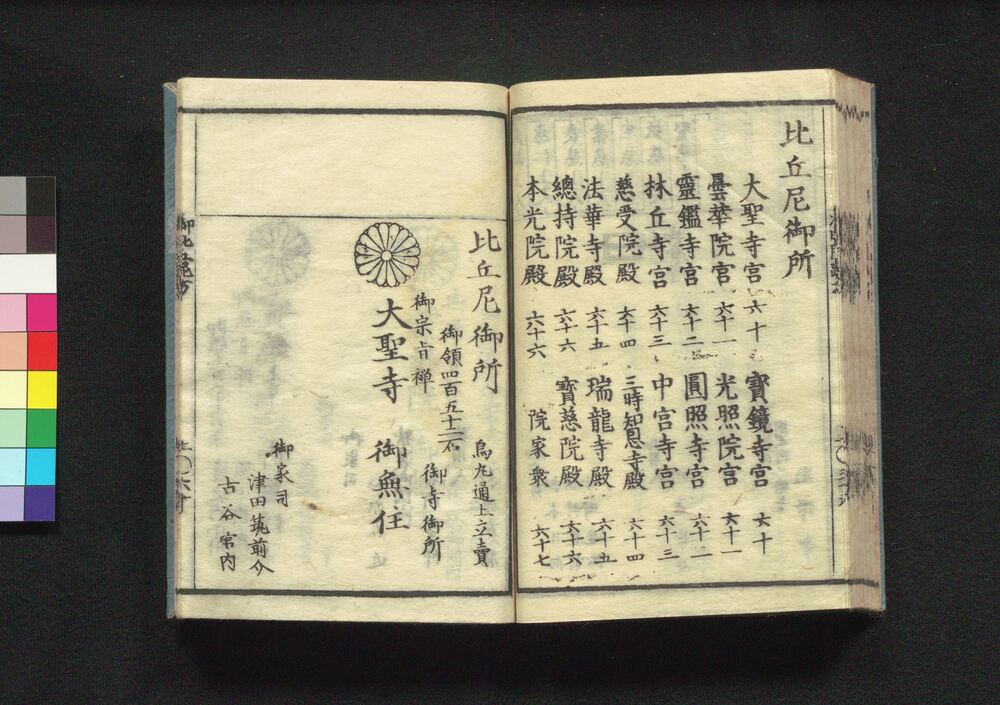 比丘尼御所
大聖寺宮 六十
曇華院宮 六十一
靈鑑寺宮 六十二
林丘寺宮 六十三
慈受院殿 六十四
法華寺殿 六十五
總持院殿 六十六
本光院殿 六十六
寶鏡寺宮 六十
光照院宮 六十一
圓照寺宮 六十二
中宮寺宮 六十三
三時知恩寺殿 六十四
瑞龍寺殿 六十五
寶慈院殿 六十六
院家衆 六十七
比丘尼御所
烏丸通上立賣
御領四百五十二石
御宗旨禅
御寺御所
大聖寺 御無住
御家司
津田筑前介
古谷宮内